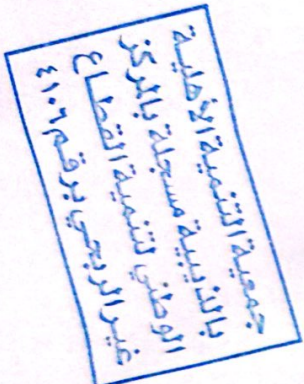 جمعية التنمية الأهلية
بالذيبية مسجلة بالمركز
الوطني لتنمية القطاع
غير الربحي برقم ٤١٠٦